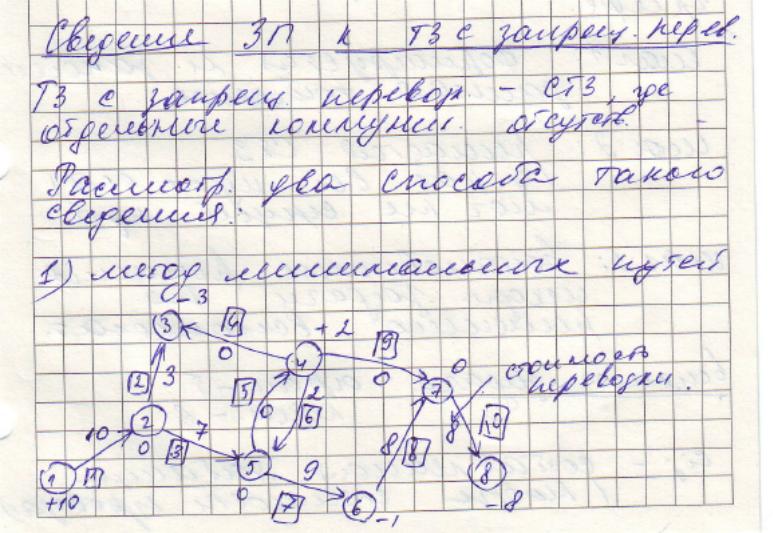 Сведение ЗП к ТЗ с запрещ. перев.
ТЗ с запрещ. перевоз. – СТЗ, где
отдельные коммуник. отсутств.
Рассмотр. два способа такого
сведения:
1) метод минимальных путей
-3
3 4 +2 9 0
0 4 0 7 стоимость
перевозки.
2 3 5 0 2 6
10 2 7 8 8 8 10
0 3 5 9 8
1 1 0 7 6 -8
+10 -1